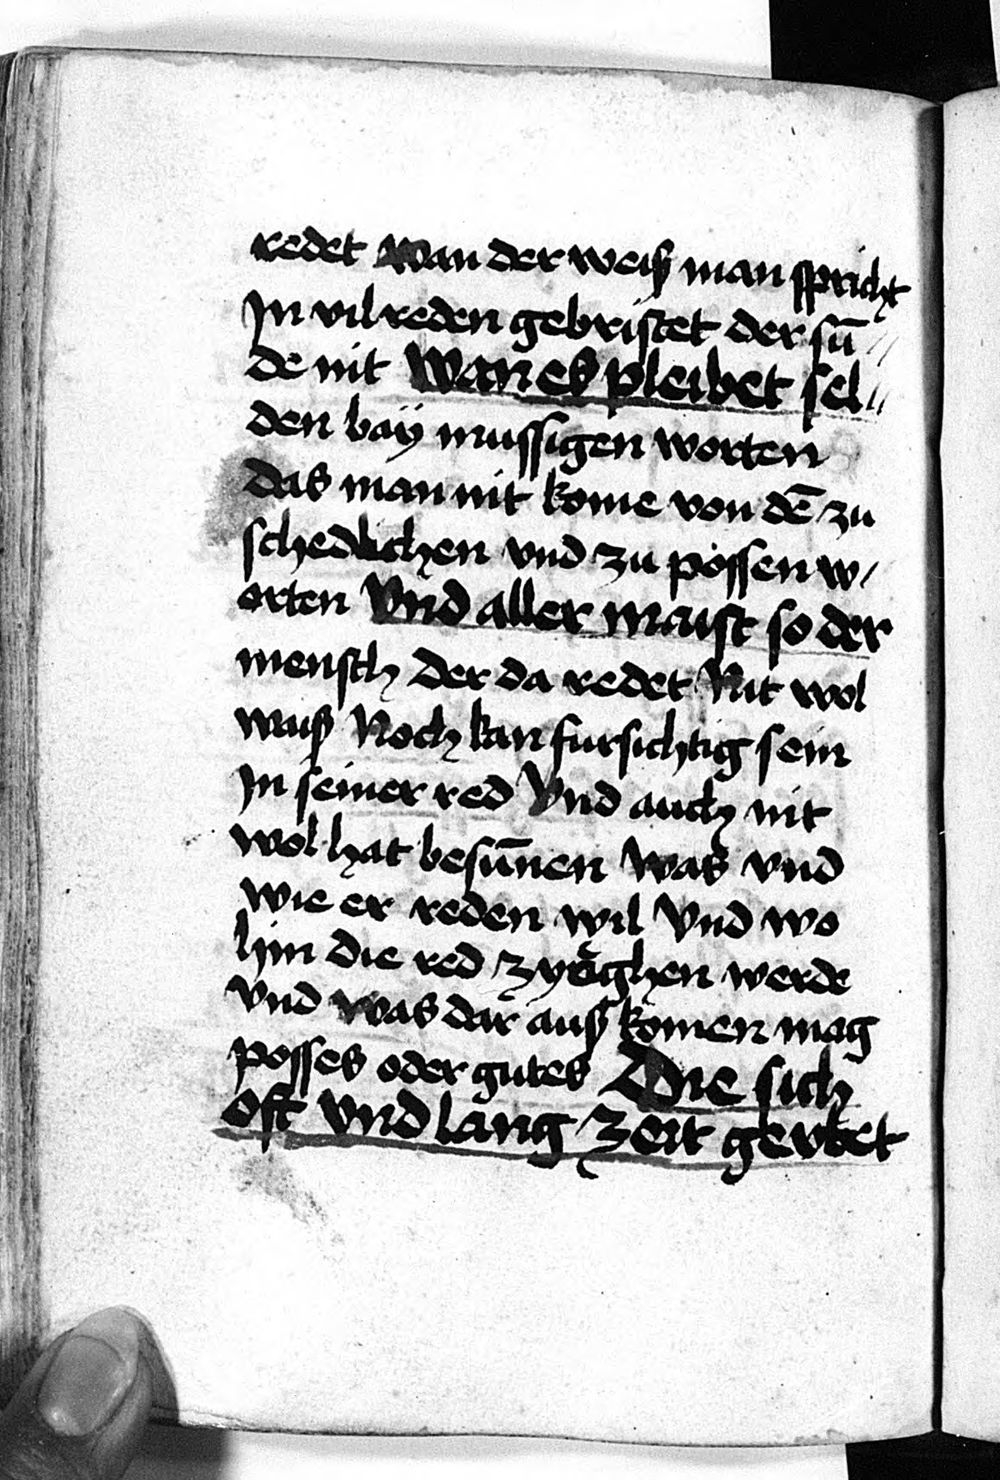 redet Wan der weiß man spricht
In vil reden gebristet der sū //
de nit Wan es pleibet sel //
den baÿ mussigen worten
das man nit kome von dē zu
schedlichen vnd zu possen w/
orten Vnd aller maist so der
mensch der da redet Nit wol
waiß Noch kan fursichtig sein
In seiner red Vnd auch nit
wol hat besūnen Was vnd
wie er reden wil Vnd wo
hin die red werde
vnd was dar auß komen mag
posses oder gutes Die sich
oft vnd lang zeit